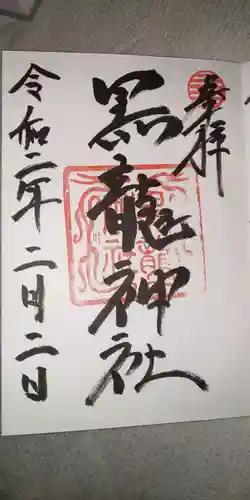 奉拝
黒龍神社
令和二年二月二日